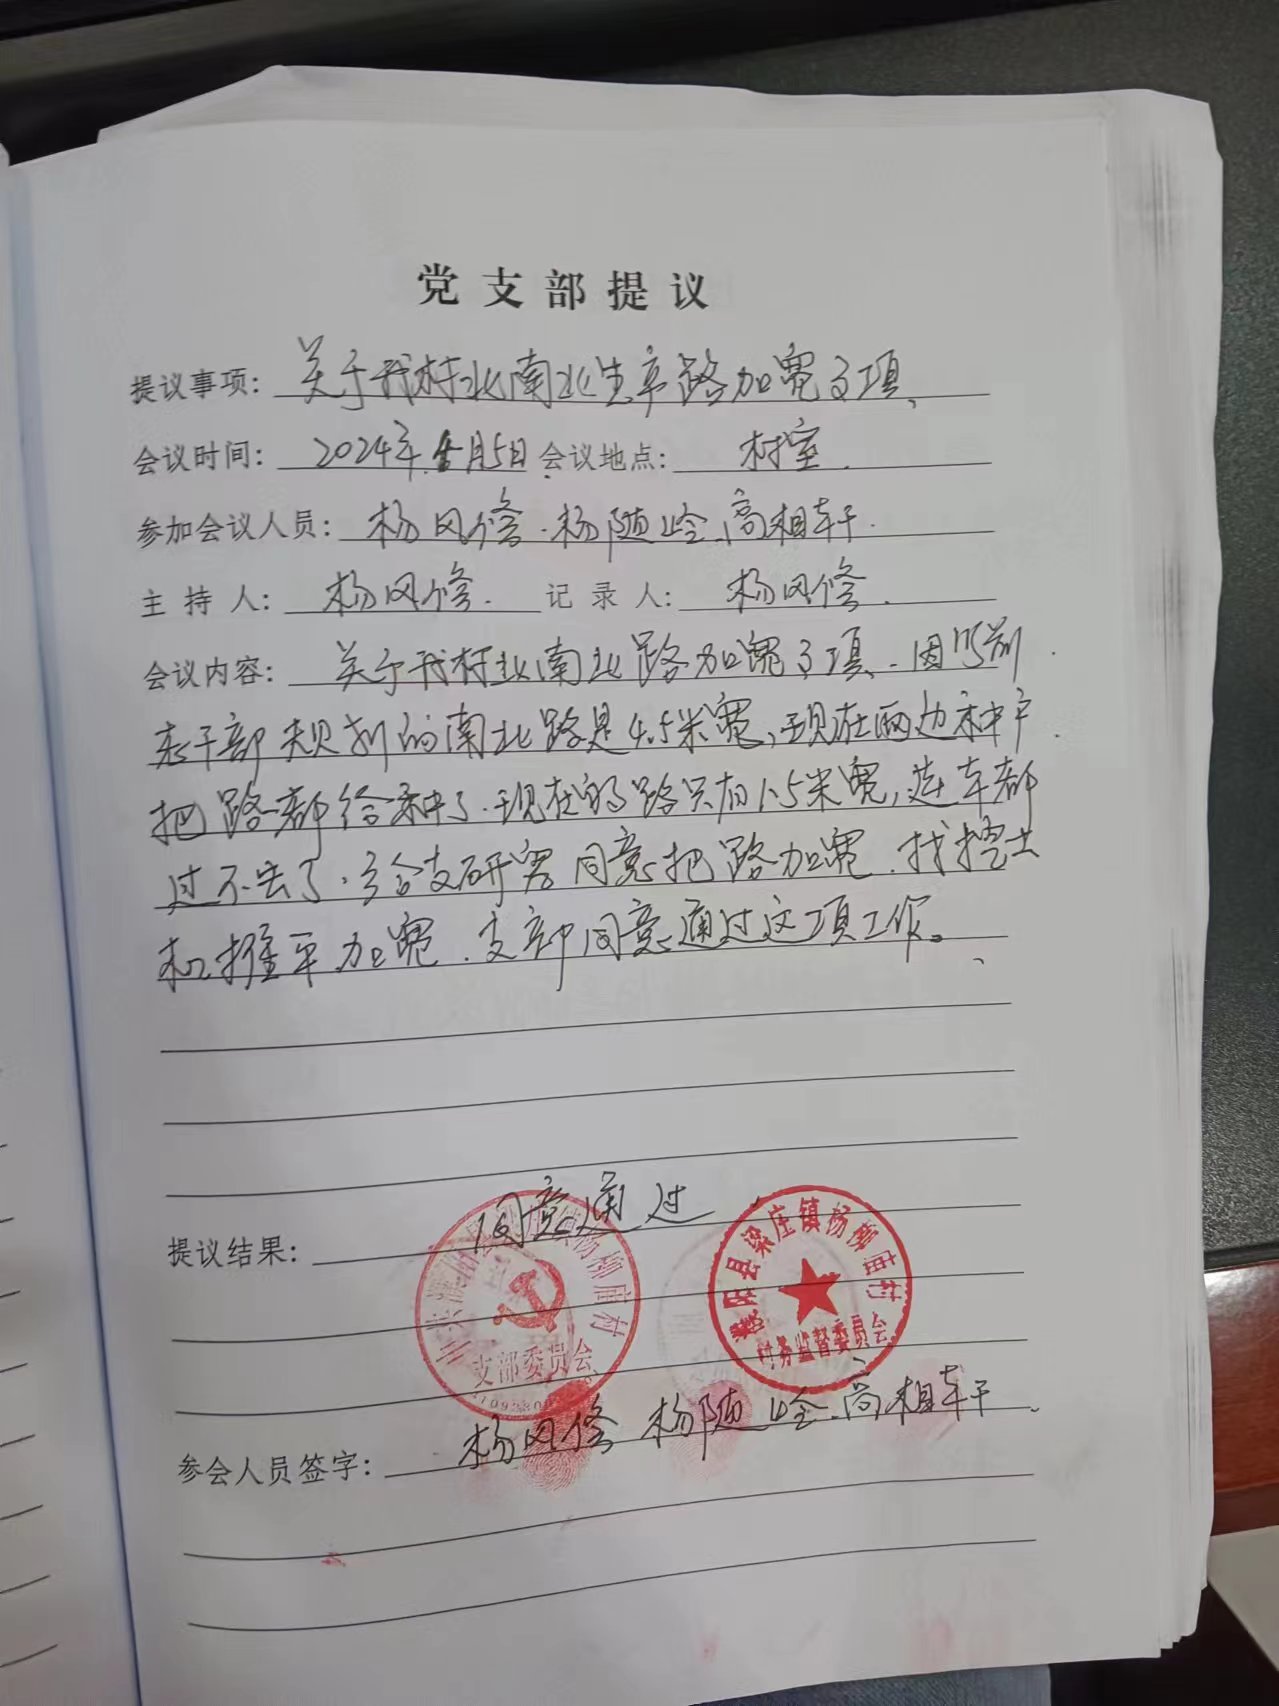 党支部提议
提议事项：关于我村北南北生产路加宽事项、
会议时间：2024年 月5日 会议地点：村室.
参加会议人员：杨风修.杨随岭.高相轩.
主持人：杨风修. 记录人：杨风修.
会议内容：关于我村北南北路加宽事项、因以前
老干部规划的南北路是4.5米宽，现在两边种户
把路都给种了.现在的路只有1.5米宽，连车都
过不去了.支研究同意把路加宽.找挖土
机推平加宽.支部同意通过这项工作。
提议结果：同意通过
濮阳县梁庄镇杨柳庙村
支部委员会
濮阳县梁庄镇杨柳庙村
村务监督委员会
参会人员签字：杨风修 杨随岭.高相轩.